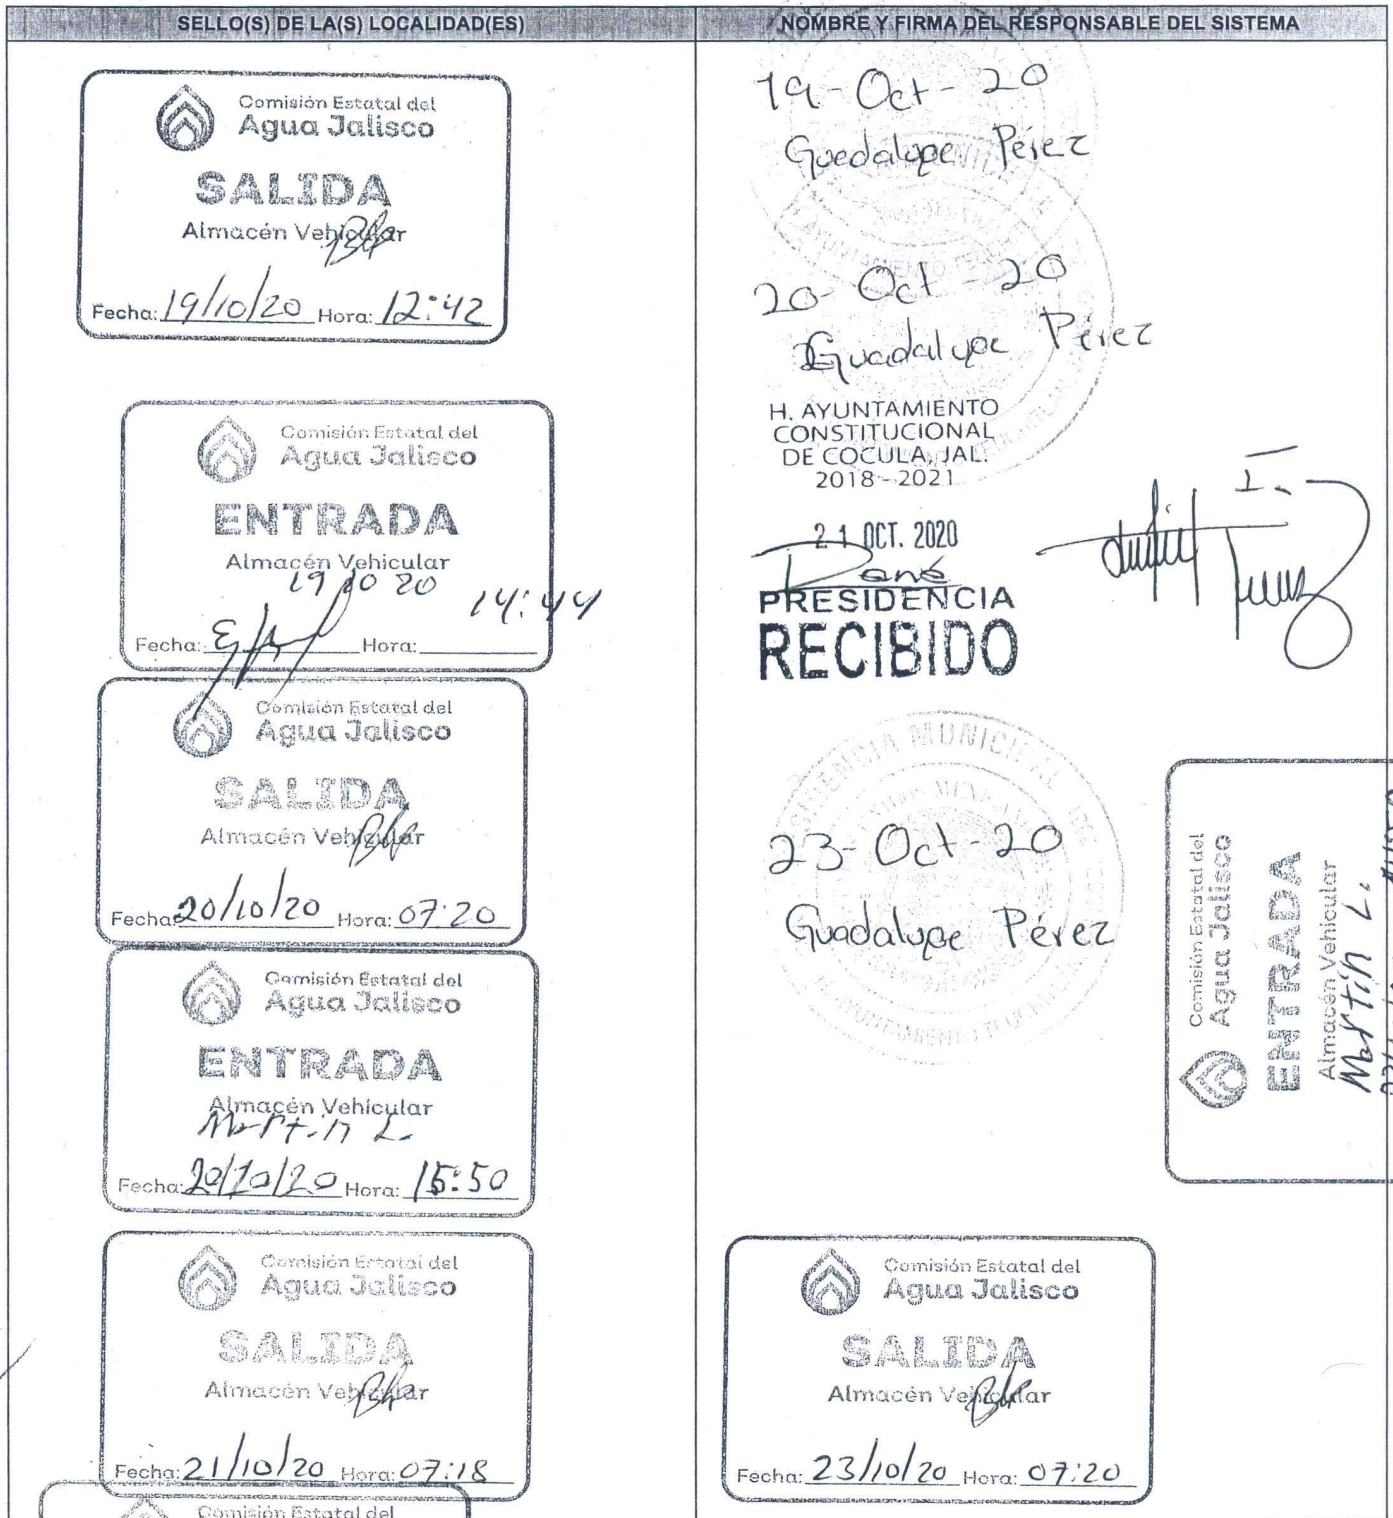 SELLO(S) DE LA(S) LOCALIDAD(ES)
Comisión Estatal del
Agua Jalisco
SALIDA
Almacén Vehicular
Fecha: 19/10/20 Hora: 12:42
Comisión Estatal del
Agua Jalisco
ENTRADA
Almacén Vehicular
19 10 20 14:44
Fecha: Hora:
Comisión Estatal del
Agua Jalisco
SALIDA
Almacén Vehicular
Fecha: 20/10/20 Hora: 07:20
Comisión Estatal del
Agua Jalisco
ENTRADA
Almacén Vehicular
Martín L.
Fecha: 20/10/20 Hora: 15:50
Comisión Estatal del
Agua Jalisco
SALIDA
Almacén Vehicular
Fecha: 21/10/20 Hora: 07:18
Comisión Estatal del
NOMBRE Y FIRMA DEL RESPONSABLE DEL SISTEMA
19-Oct-20
Guadalupe Pérez
20-Oct-20
Guadalupe Pérez
H. AYUNTAMIENTO
CONSTITUCIONAL
DE COCULA, JAL.
2018-2021
21 OCT. 2020
René
PRESIDENCIA
RECIBIDO
MUNICIPAL
23-Oct-20
Guadalupe Pérez
AYUNTAMIENTO
Comisión Estatal del
Agua Jalisco
ENTRADA
Almacén Vehicular
Martín L.
Comisión Estatal del
Agua Jalisco
SALIDA
Almacén Vehicular
Fecha: 23/10/20 Hora: 07:20